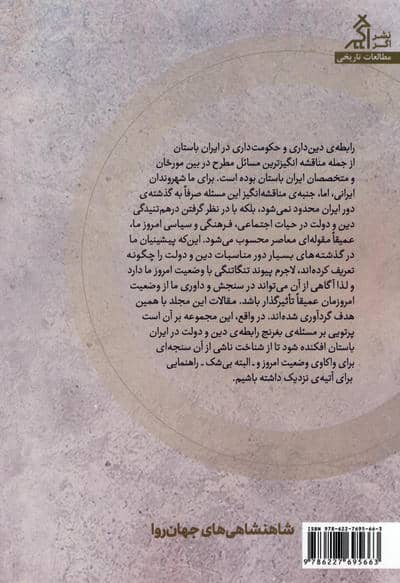 نشر
اگر
مطالعات تاریخی
رابطه‌ی دین‌داری و حکومت‌داری در ایران باستان
از جمله مناقشه انگیزترین مسائل مطرح در بین مورخان
و متخصصان ایران باستان بوده است. برای ما شهروندان
ایرانی، اما، جنبه‌ی مناقشه‌انگیز این مسئله صرفاً به گذشته‌ی
دور ایران محدود نمی‌شود، بلکه با در نظر گرفتن درهم‌تنیدگی
دین و دولت در حیات اجتماعی، فرهنگی و سیاسی امروز ما،
عمیقاً مقوله‌ای معاصر محسوب می‌شود. این‌که پیشینیان ما
در گذشته‌های بسیار دور مناسبات دین و دولت را چگونه
تعریف کرده‌اند، لاجرم پیوند تنگاتنگی با وضعیت امروز ما دارد
و لذا آگاهی از آن می‌تواند در سنجش و داوری ما از وضعیت
امروزمان عمیقاً تأثیرگذار باشد. مقالات این مجلد با همین
هدف گردآوری شده‌اند. در واقع، این مجموعه بر آن است
پرتویی بر مسئله‌ی بغرنج رابطه‌ی دین و دولت در ایران
باستان افکنده شود تا از شناخت ناشی از آن سنجه‌ای
برای واکاوی وضعیت امروز و ـ البته بی‌شک ـ راهنمایی
برای آتیه‌ی نزدیک داشته باشیم.
شاهنشاهی‌های جهان‌روا
ISBN: 978-622-7695-66-3
9 786227 695663